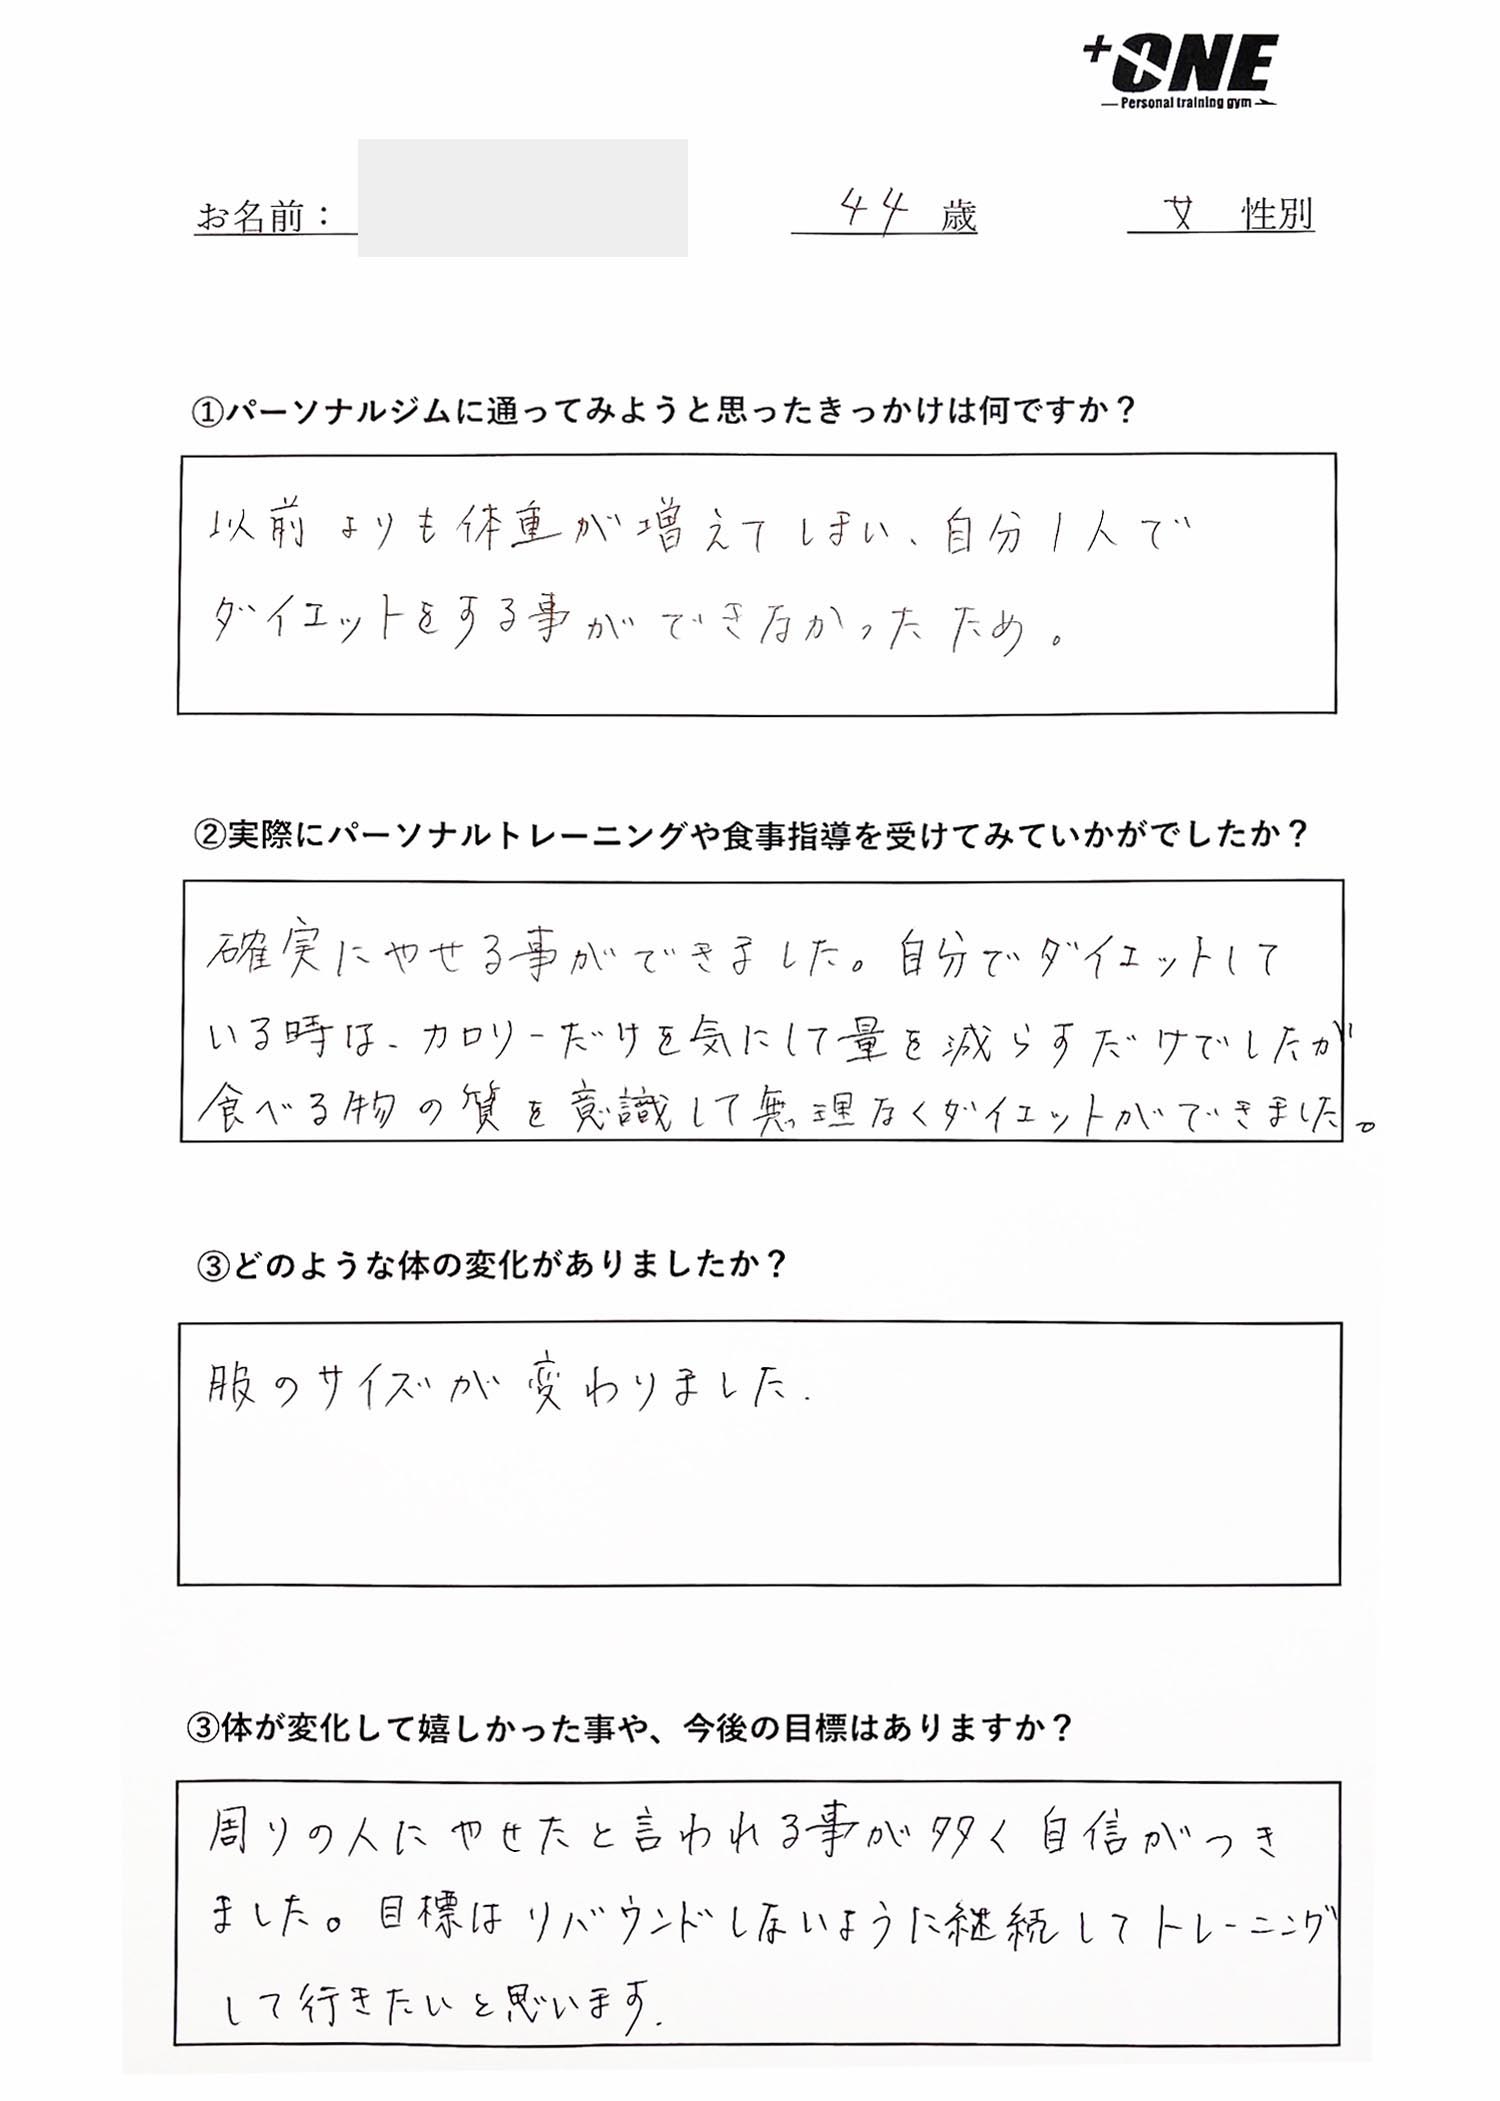 +ONE
Personal training gym
お名前：
44 歳
女 性別
①パーソナルジムに通ってみようと思ったきっかけは何ですか？
以前よりも体重が増えてしまい、自分1人で
ダイエットをする事ができなかったため。
②実際にパーソナルトレーニングや食事指導を受けてみていかがでしたか？
確実にやせる事ができました。自分でダイエットして
いる時は、カロリーだけを気にして量を減らすだけでしたが
食べる物の質を意識して無理なくダイエットができました。
③どのような体の変化がありましたか？
服のサイズが変わりました.
③体が変化して嬉しかった事や、今後の目標はありますか？
周りの人にやせたと言われる事が多く自信がつき
ました。目標はリバウンドしないように継続してトレーニング
して行きたいと思います.